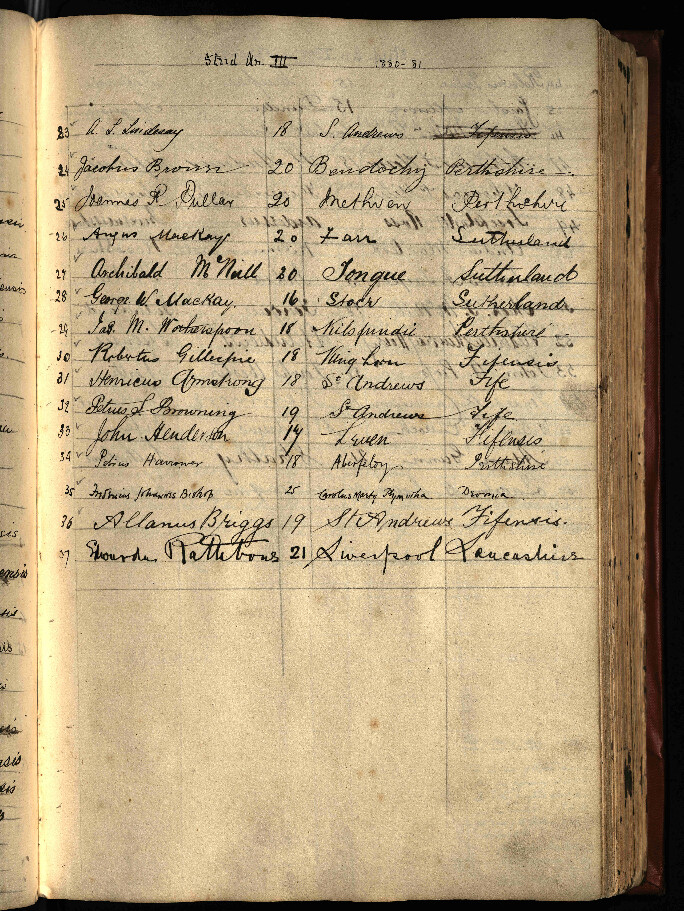 Stud An. III 1880-81
23 A. L. Lindesay 18 S. Andrews Fifensis
24 Jacobus Brown 20 Bendochy Perthshire
25 Joannes R. Pullar 20 Methven Perthshire
26 Angus Mackay 20 Farr Sutherland
27 Archibald McNeill 20 Tongue Sutherland
28 George W. Mackay. 16 Stoer Sutherland
29 Jas. M. Wotherspoon 18 Kilspindie Perthshire
30 Robertus Gillespie 18 Kinghorn Fifensis
31 Henricus Armstrong 18 St Andrews Fife
32 Petrus L Browning 19 St Andrews Fife
33 John Henderson 17 Leven Fifensis
34 Petrus Harrower 18 Aberfeloy Perthshire
35 Johannes Bishop 25 Devonia
36 Allanus Briggs 19 St Andrews Fifensis.
37 Rathbone 21 Liverpool Lancashire